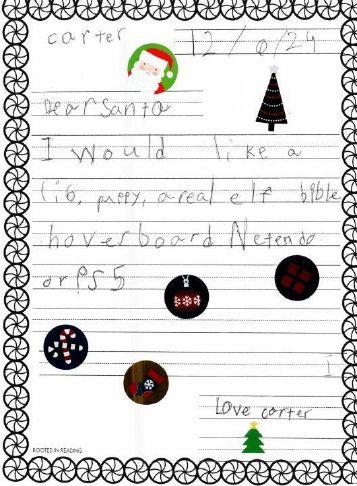 carter
12/6/24
Dear Santa
I would like a
puppy, a real elf bible
hoverboard Netendo
or PS5
I
Love carter
ROOTED IN READING